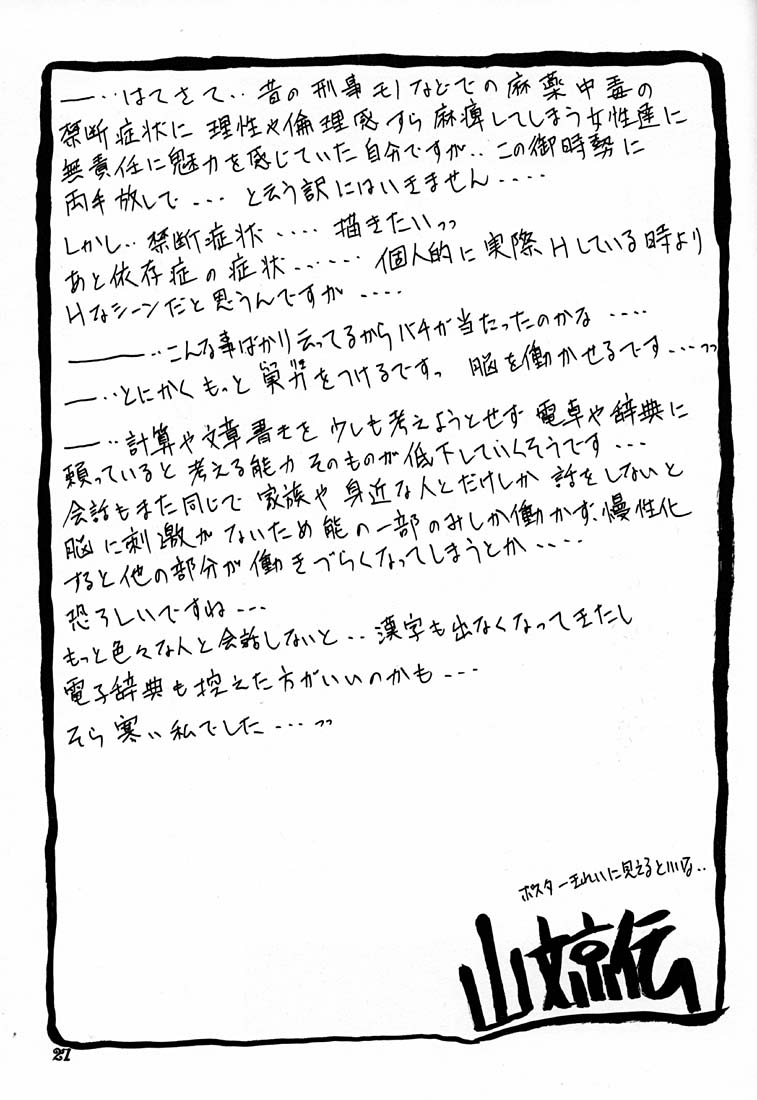 ―‥はてさて‥昔の刑事モノなどでの麻薬中毒の
禁断症状に理性や倫理感すら麻痺してしまう女性達に
無責任に魅力を感じていた自分ですが‥この御時勢に
両手放しで‥‥と云う訳にはいきません‥‥
しかし‥禁断症状‥‥描きたいっっ
あと依存症の症状‥‥‥個人的に実際Hしている時より
Hなシーンだと思うんですが‥‥
―‥こんな事ばかり云ってるからバチが当たったのかな‥‥
―‥とにかくもっと をつけるですっ 脳を働かせるです‥‥っっ
―‥計算や文章書きを少しも考えようとせず電卓や辞典に
頼っていると考える能力そのものが低下していくそうです‥‥
会話もまた同じで家族や身近な人とだけしか話をしないと
脳に刺激がないため能の一部のみしか働かず、慢性化
すると他の部分が働きづらくなってしまうとか‥‥
恐ろしいですね‥‥
もっと色々な人と会話しないと‥漢字も出なくなってきたし
電子辞典も控えた方がいいのかも‥‥
そら寒い私でした‥‥っっ
ポスターきれいに見えるといいな‥
山文京伝
27